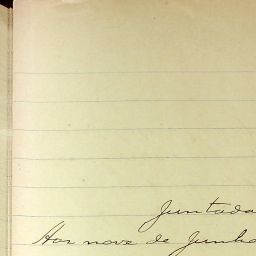 Juntada
Aos nove de Junho